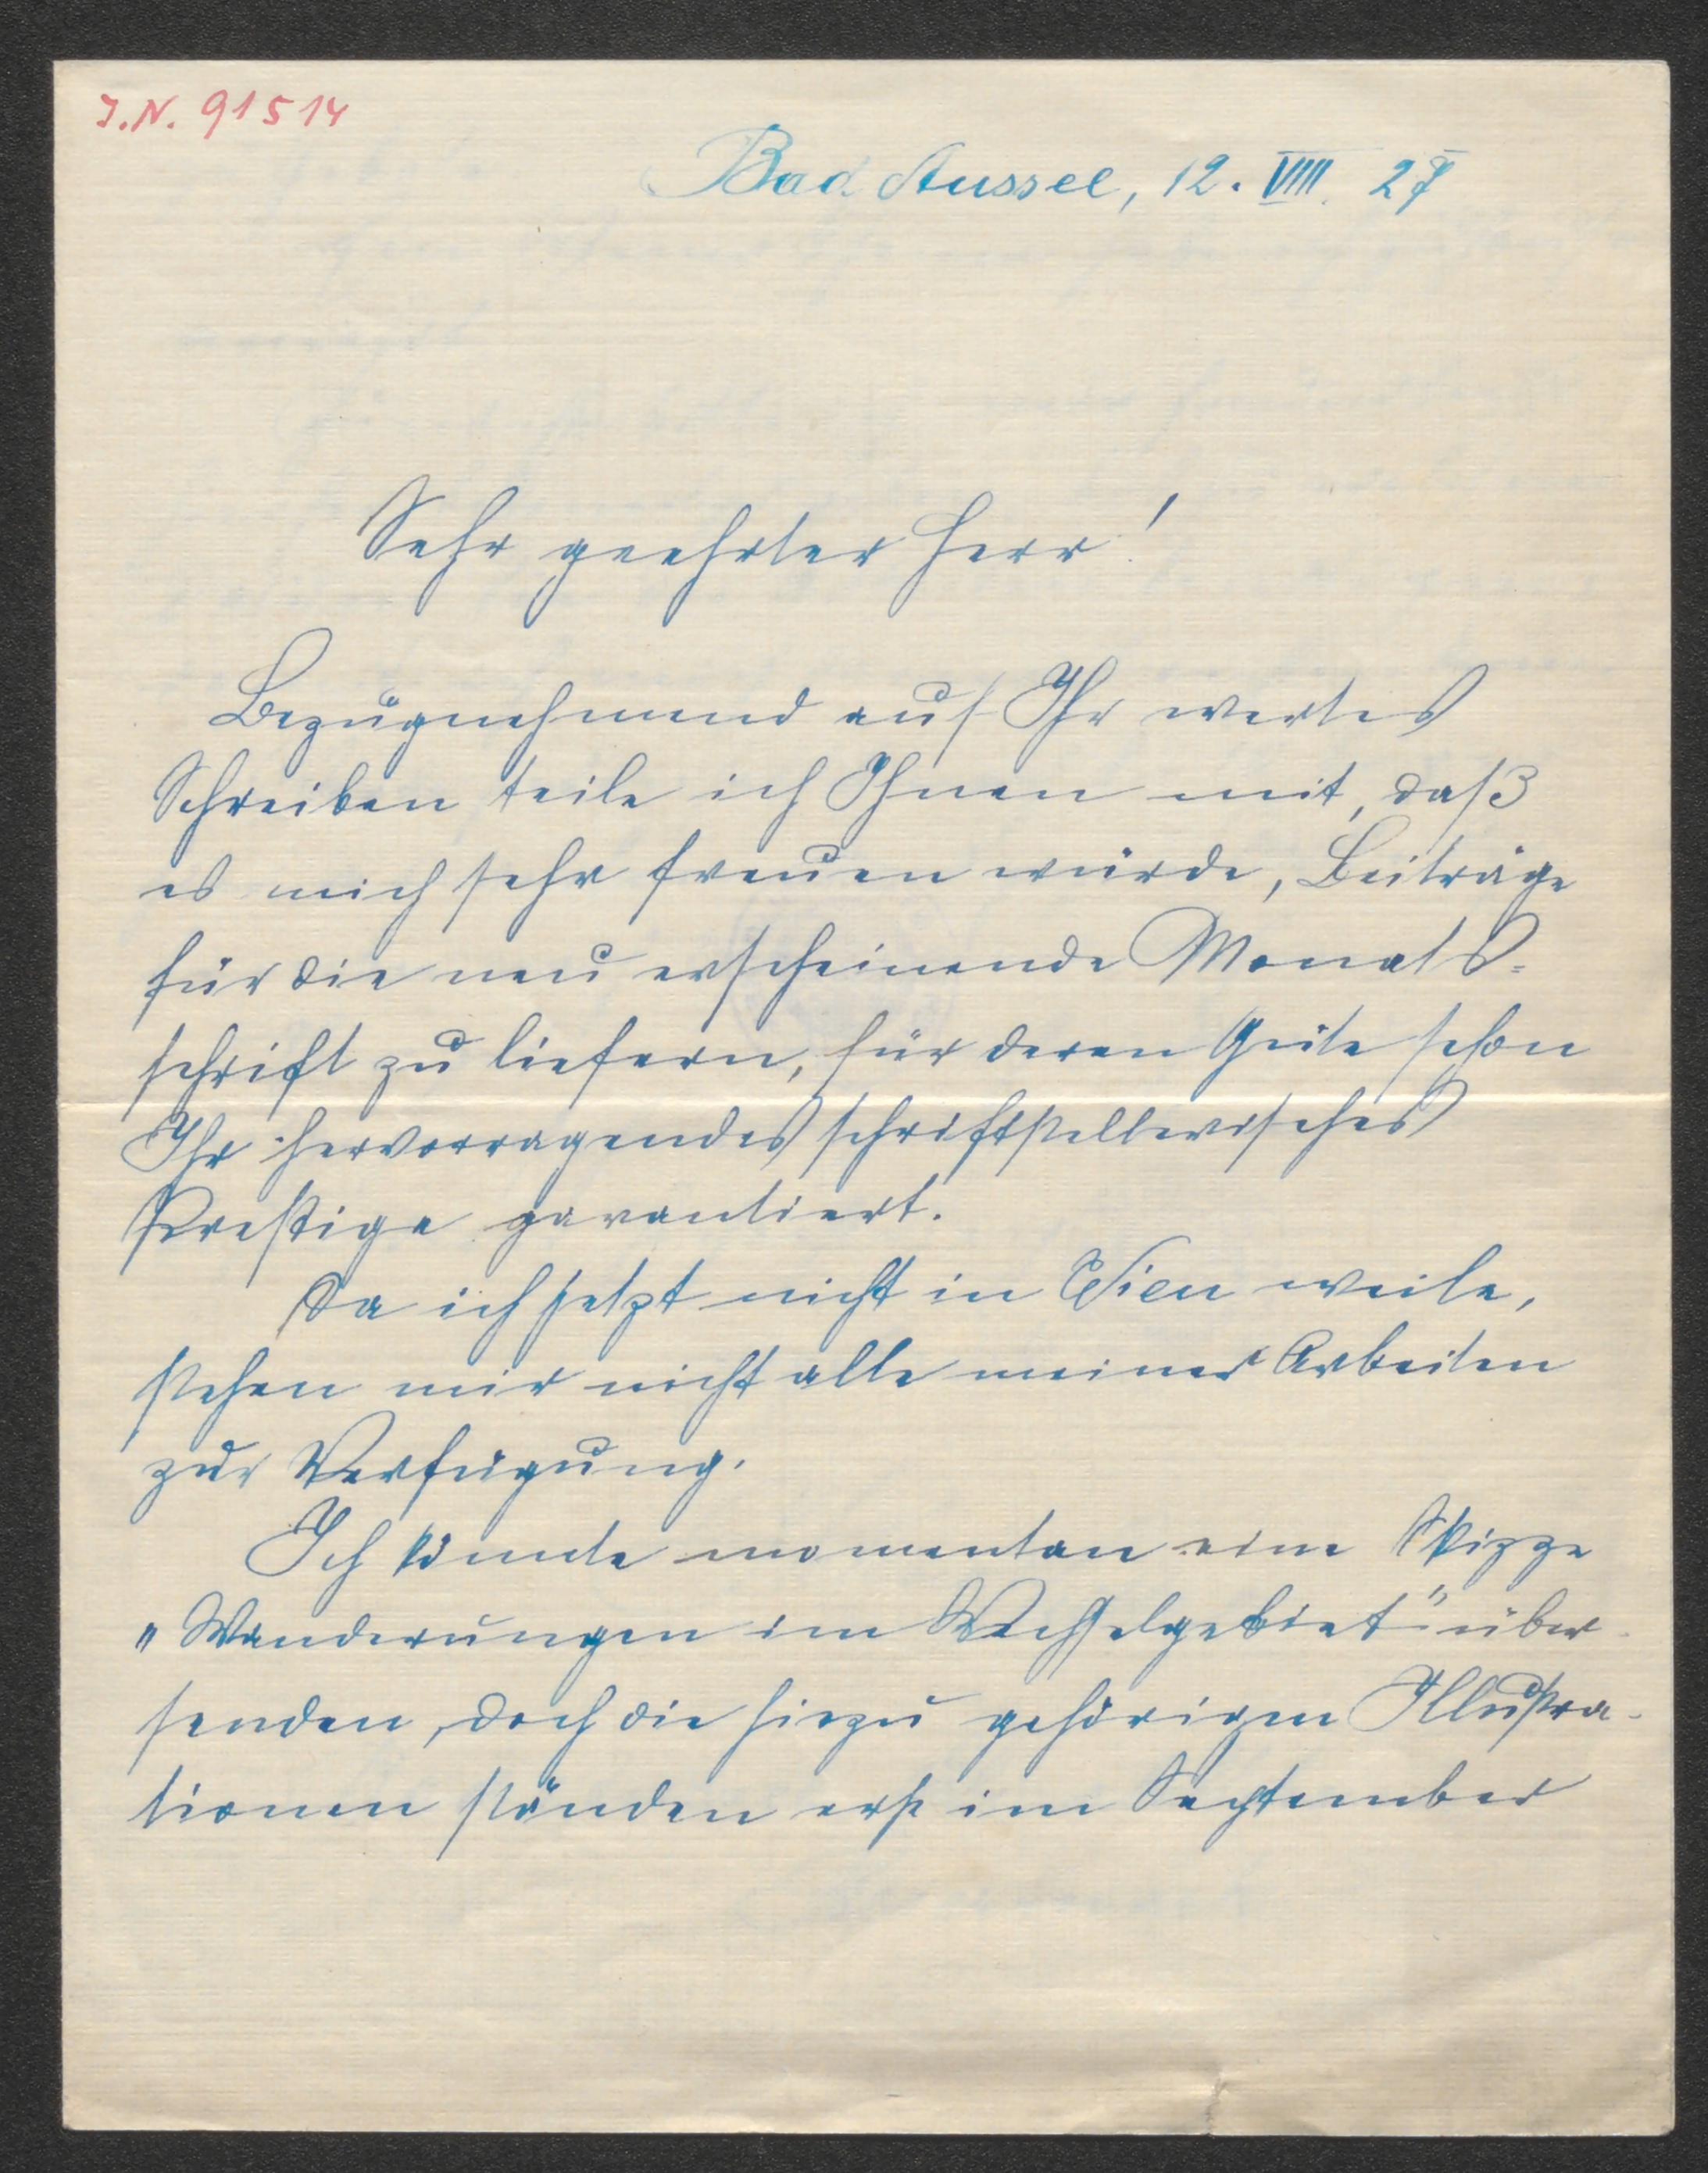 J.N. 91514
Bad Aussee, 12. VIII. 27
Sehr geehrter Herr!
Bezugnehmend auf Ihr wertes
Schreiben teile ich Ihnen mit, daß
es mich sehr freuen würde, Beiträge
für die neu erscheinende Monats-
schrift zu liefern, für deren Güte schon
Ihr hervorragendes schriftstellerisches
Prestige garantiert.
Da ich jetzt nicht in Wien weile,
stehen mir nicht alle meiner Arbeiten
zur Verfügung.
Ich könnte momentan eine Skizze
„Wanderungen im Wechselgebiet" über-
senden, doch die hiezu gehörigen Illustra-
tionen ständen erst im September